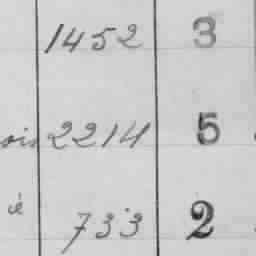 1452 3
ois 2214 5
é 733 2